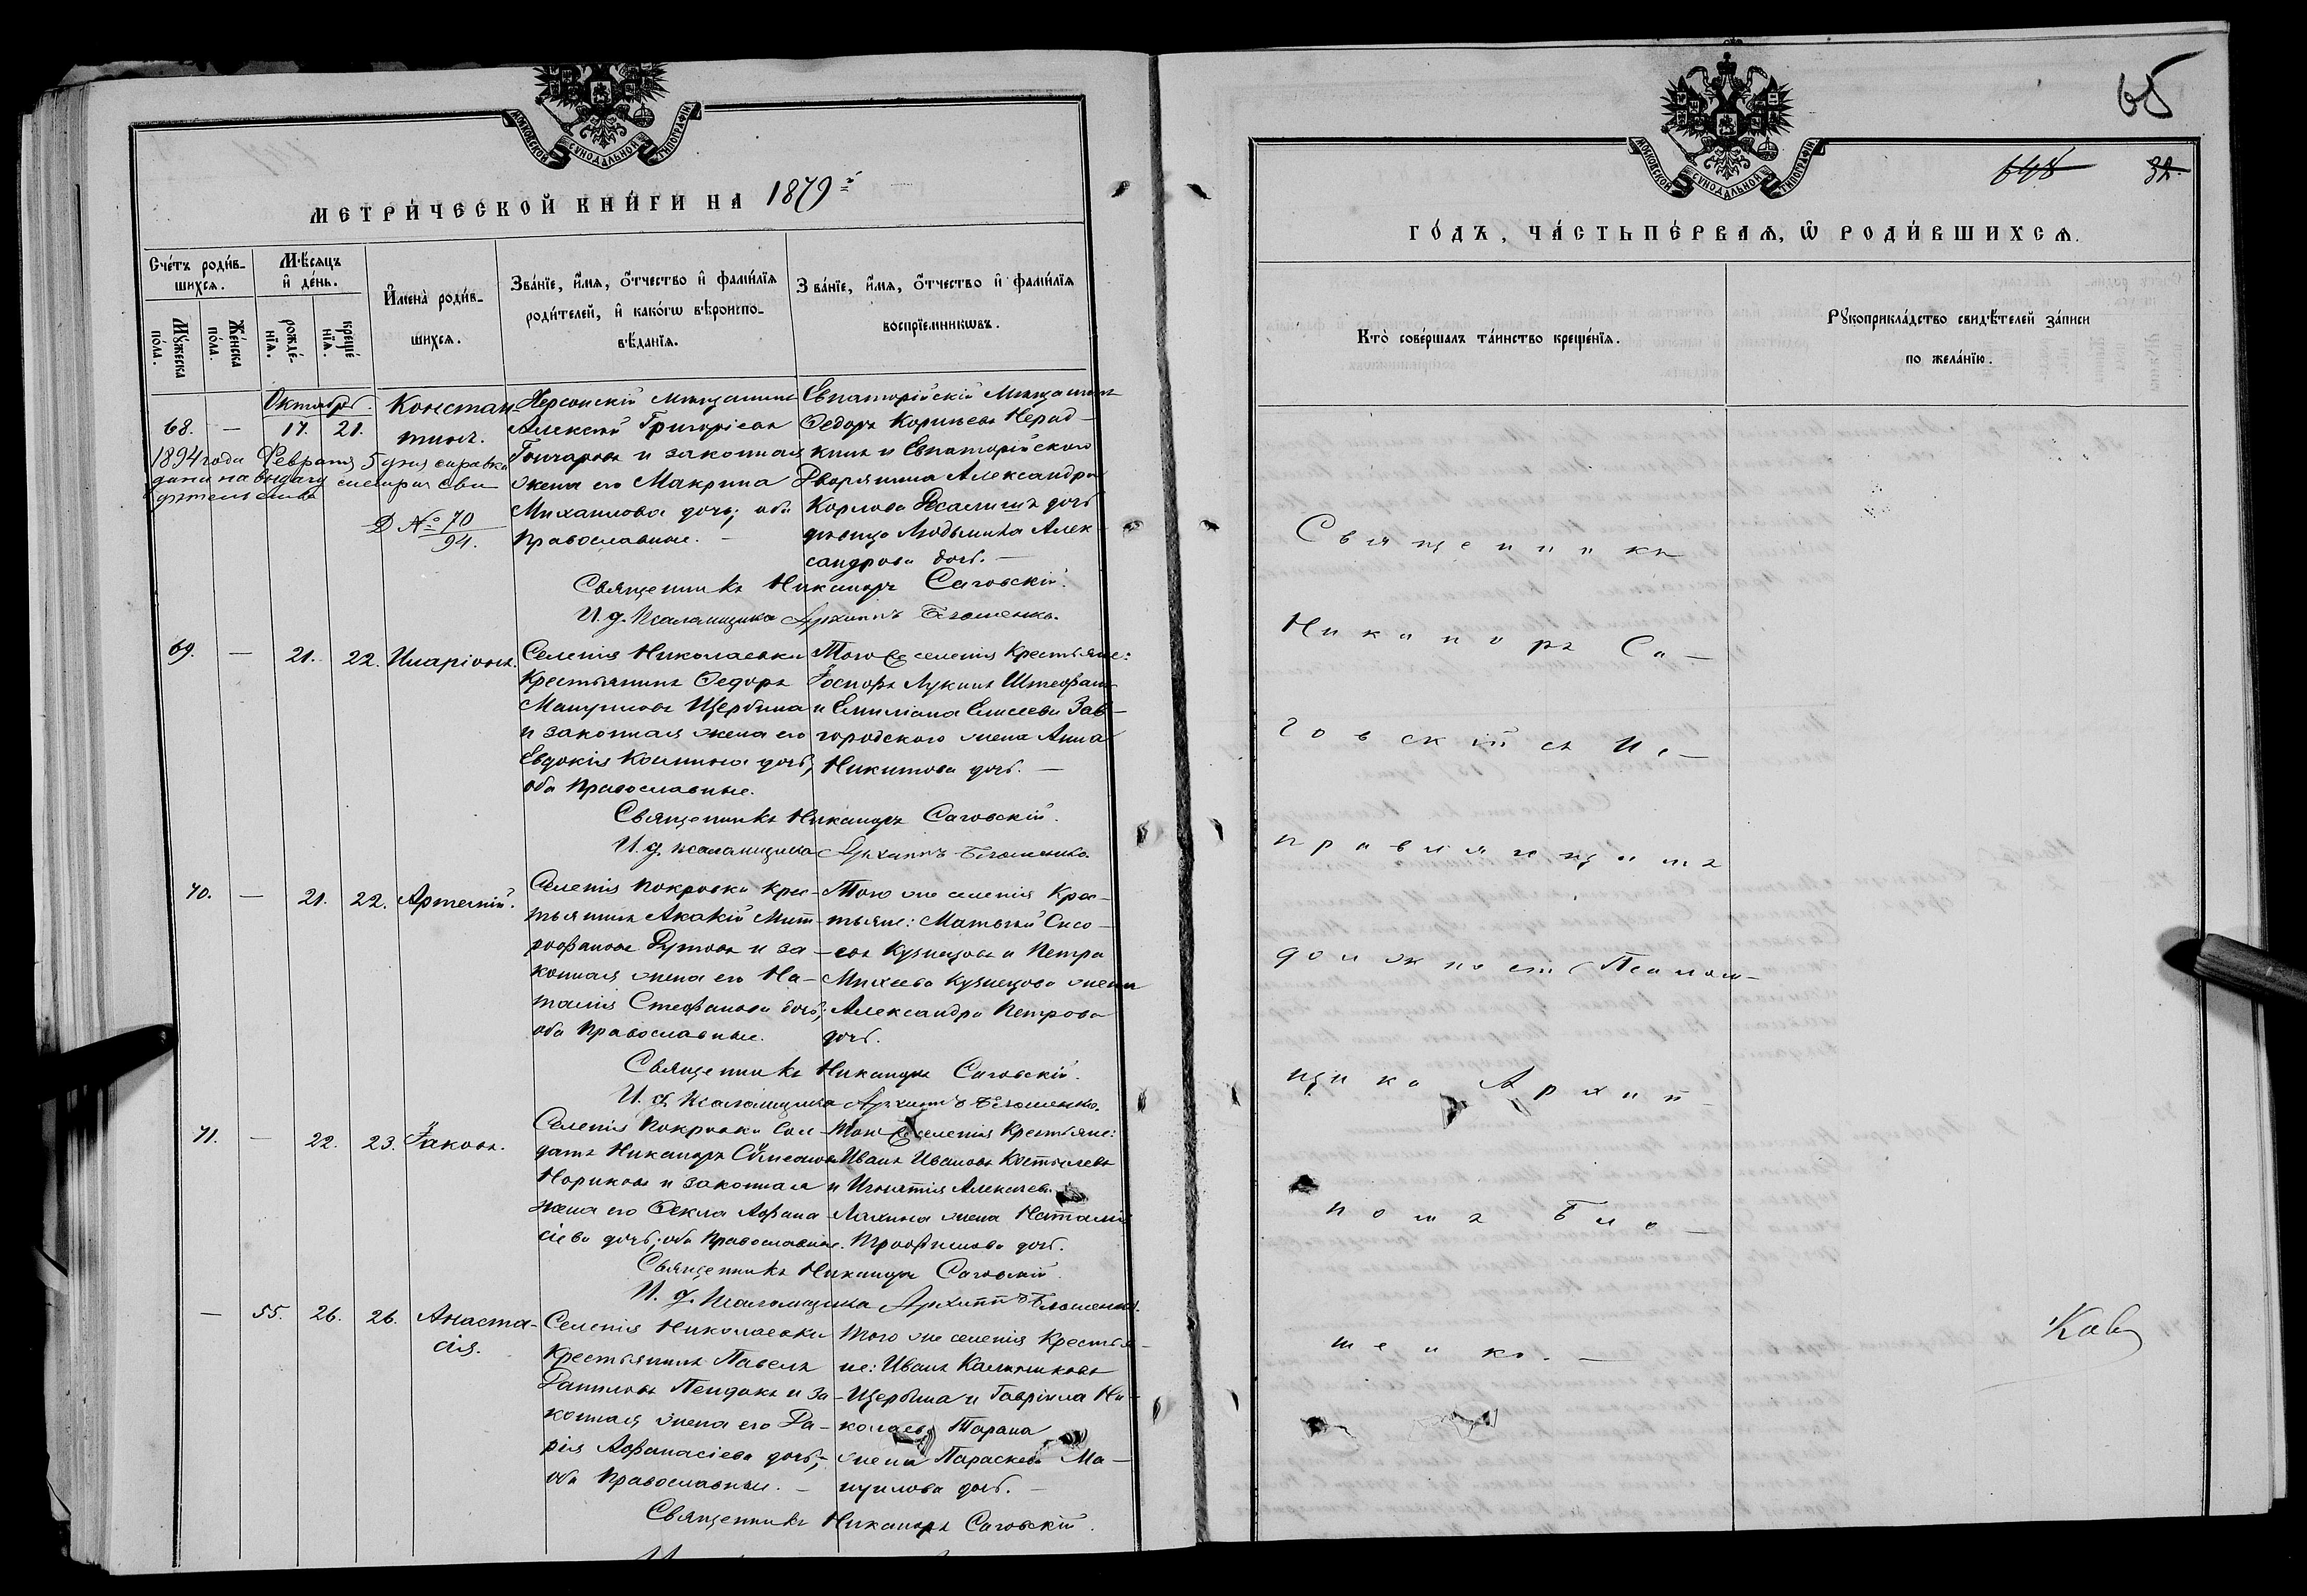 МОСКОВСКОЙ СѴНОДАЛЬНОЙ ТИПОГРАФІИ
МЕТРИ́ЧЕСКОЙ КНИ́ГИ НА 1879й
Сче́тъ роди́в-
шихся.
Мꙋжеска
по́ла.
Же́нска
по́ла.
Мѣ́сяцъ
и҆ де́нь.
рожде́-
нїѧ.
креще́
нїѧ.
И҆мена̀ роди́в-
шихсѧ.
Зва́нїе, и҆́мѧ, ѻ҆́тчество и҆ фами́лїѧ
роди́телей, и҆ како́гѡ вѣроиспо-
вѣ́данїѧ.
Зва́нїе, и҆́мѧ, ѻ҆́тчество и҆ фами́лїѧ
воспрїе́мникѡвъ.
Октябрь.
68. — 17. 21.
Констан-
тинъ.
1894 года Февраля 5 дня справка
дана на выдачу метрич. сви
дѣтельства
№ 70
94.
Херсонскій мѣщанинъ
Алексѣй Григоріевъ
Гончаровъ и законная
жена его Макрина
Михаилова дочь; оба
православные. —
Евпаторійскій мѣщанинъ
Ѳедоръ Корніевъ Нерад-
кинъ и Евпаторійскаго
Дворянина Александра
Карлова дочь
дѣвица Людмила Алек-
сандрова дочь. —
Священникъ Никаноръ Саговскій.
И. д. Псаломщика Архиппъ Блошенко.
69. — 21. 22. Иларіонъ.
Селенія Николаевки
Крестьянинъ Ѳедоръ
Мануиловъ Щербина
и законная жена его
Евдокія дочь,
оба Православные.
Того же селенія Крестьяне:
Іосифъ Лукинъ
и Емиліана Елисеева Зав-
городского жена Анна
Никитова дочь. —
Священникъ Никаноръ Саговскій.
И. д. псаломщика Архиппъ Блошенко.
70. — 21. 22. Артемій.
Селенія Покровки Крес-
тьянинъ Акакій Мит-
рофановъ и за-
конная жена его На-
талія Стефанова дочь,
оба Православные.
Того же селенія Крес-
тьяне: Матвѣй Сисо-
евъ Кузнецовъ и Петра
Михеева Кузнецова жена
Александра Петрова
дочь.
Священникъ Никаноръ Саговскій.
И. д. Псаломщика Архиппъ Блошенко.
71. — 22. 23. Іаковъ.
Селенія Покровки Сол-
датъ Никаноръ
Нориковъ и законная
жена его Ѳекла Аѳана-
сіева дочь; оба Православные.
Того же селенія Крестьяне:
Иванъ Ивановъ Костылевъ
и Игнатія Алексѣева
Ляхина жена Наталія
Трофимова дочь.
Священникъ Никаноръ Саговскій.
И. д. Псаломщика Архиппъ Блошенко.
— 55. 26. 26. Анаста-
сія.
Селенія Николаевки
Крестьянинъ Павелъ
Даниловъ Пендакъ и за-
конная жена его Да-
рія Аѳанасіева дочь,
оба Православные. —
Того же селенія Крестья-
не: Иванъ Калиниковъ
Щербина и Гавріила Ни-
колаева Тарана
жена Параскева Ма-
нуилова дочь. —
Священникъ Никаноръ Саговскій.
65
648 32.
МОСКОВСКОЙ СѴНОДАЛЬНОЙ ТИПОГРАФІИ
ГО́ДЪ, ЧА́СТЬ ПЕ́РВАѦ, Ѡ҆ РОДИ́ВШИХСѦ.
Кто̀ соверша́лъ та́инство креще́нїѧ.
Рꙋкоприкла́дство свидѣ́телей за́писи
по жела́нїю.
Священникъ
Никаноръ Са-
говскій съ Ис-
правляющимъ
должность Псалом-
щика Архип-
помъ Бло-
шенко. —